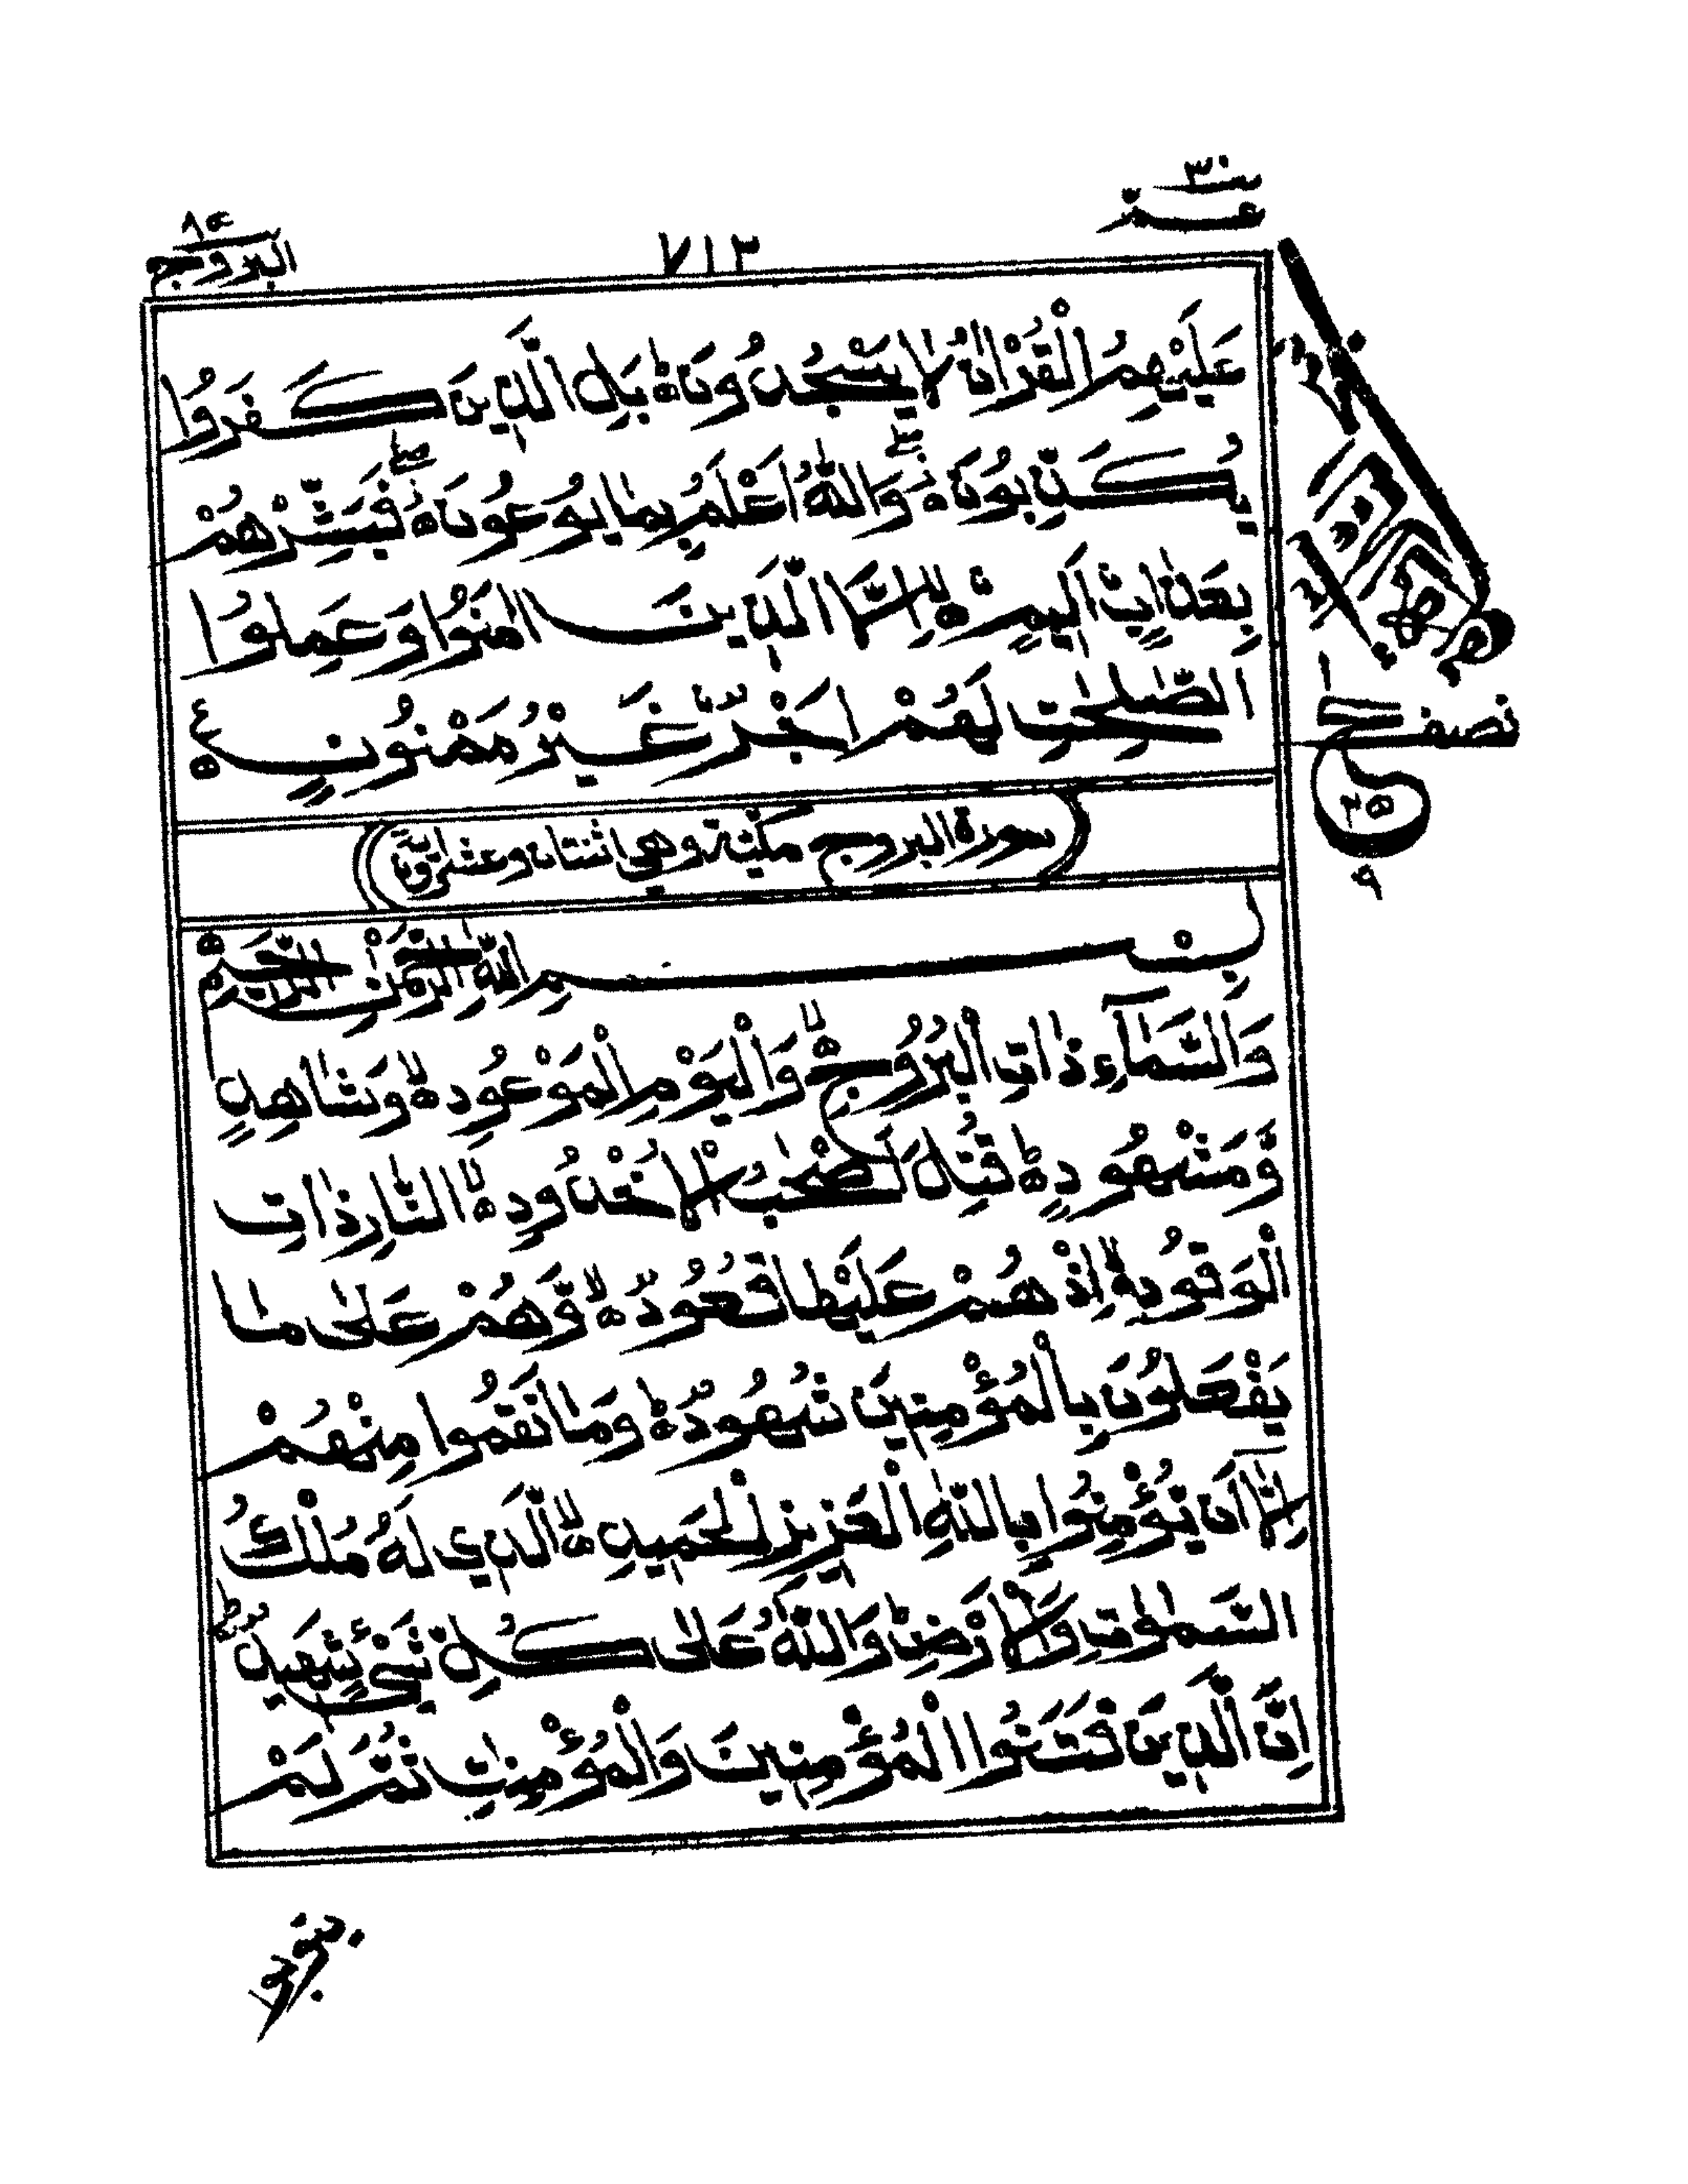 عم ٣٠
٧١٣
البروج ٨٥
عَلَيْهِمُ الْقُرْاٰنُ لَا يَسْجُدُوْنَ ؕ بَلِ الَّذِيْنَ كَفَرُوْا
يُكَذِّبُوْنَ ۖ وَاللّٰهُ اَعْلَمُ بِمَا يُوْعُوْنَ ۖ فَبَشِّرْهُمْ
بِعَذَابٍ اَلِيْمٍ ۙ اِلَّا الَّذِيْنَ اٰمَنُوْا وَعَمِلُوا
الصّٰلِحٰتِ لَهُمْ اَجْرٌ غَيْرُ مَمْنُوْنٍ
نصف
٢٥
٩
سورة البروج مكية وهي اثنتان وعشرون اية
بِسْمِ اللّٰهِ الرَّحْمٰنِ الرَّحِيْمِ
وَالسَّمَآءِ ذَاتِ الْبُرُوْجِ ۙ وَالْيَوْمِ الْمَوْعُوْدِ ۙ وَشَاهِدٍ
وَّمَشْهُوْدٍ ؕ قُتِلَ اَصْحٰبُ الْاُخْدُوْدِ ۙ النَّارِ ذَاتِ
الْوَقُوْدِ ۙ اِذْ هُمْ عَلَيْهَا قُعُوْدٌ ۙ وَّهُمْ عَلٰى مَا
يَفْعَلُوْنَ بِالْمُؤْمِنِيْنَ شُهُوْدٌ ؕ وَمَا نَقَمُوْا مِنْهُمْ
اِلَّآ اَنْ يُّؤْمِنُوْا بِاللّٰهِ الْعَزِيْزِ الْحَمِيْدِ ۙ الَّذِيْ لَهٗ مُلْكُ
السَّمٰوٰتِ وَالْاَرْضِ ؕ وَاللّٰهُ عَلٰى كُلِّ شَيْءٍ شَهِيْدٌ ؕ
اِنَّ الَّذِيْنَ فَتَنُوا الْمُؤْمِنِيْنَ وَالْمُؤْمِنٰتِ ثُمَّ لَمْ